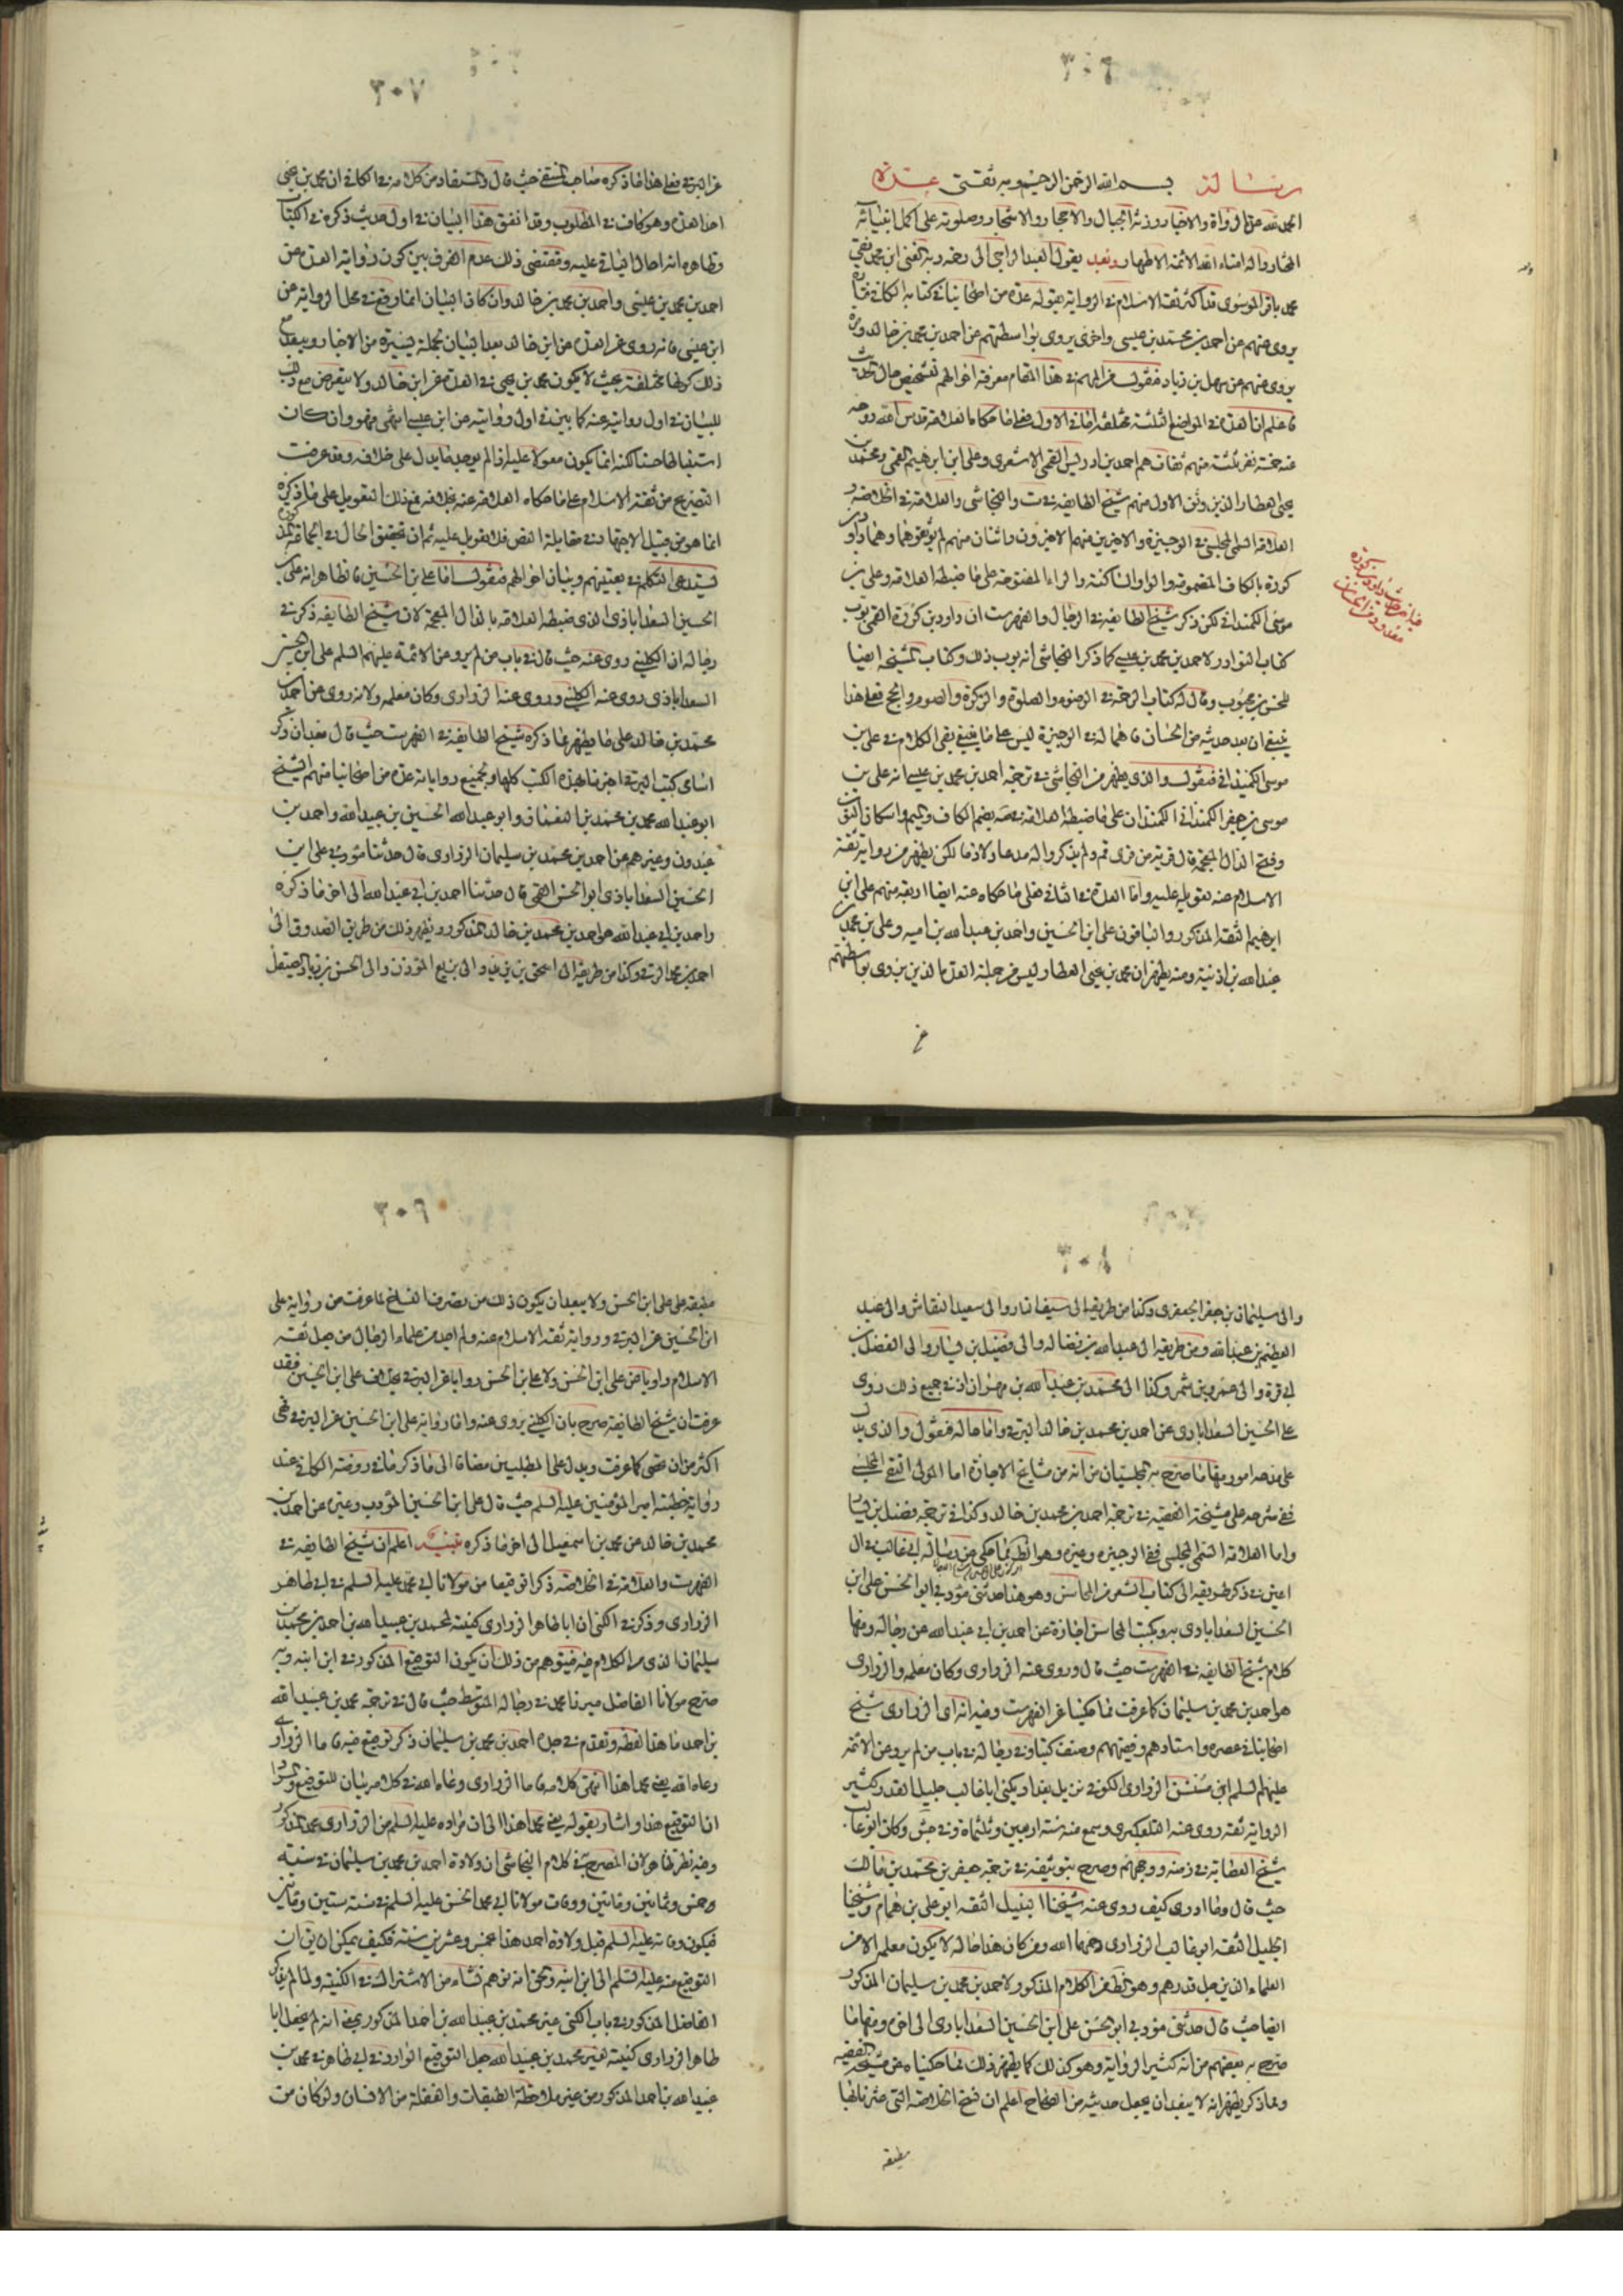 ٣٠٦
رسالة بسم الله الرحمن الرحيم وبه ثقتي عدة
الحمد لله عدد الرواة والاخبار وزنة الجبال والاحجار والاشجار وصلوته على اكمل انبيائه
المختار واله امناء الله الائمة الاطهار وبعد يقول العبد الراجي الى رحمة ربه الغني ابن محمد نقي
محمد باقر الموسوى قد اكثر ثقة الاسلام في الرواية بقوله عدة من اصحابنا في كتابه الكافي فتارة
يروى عنهم عن احمد بن محمد بن عيسى واخرى يروى بواسطتهم عن احمد بن محمد بن خالد وتارة
يروى عنهم عن سهل بن زياد فنقول من المهم في هذا المقام معرفة احوالهم لتشخيص حال الحديث
فاعلم ان العدة في المواضع الثلثة مختلفة اما في الاول فعلى ما حكاه العلامة قدس الله روحه
عنه خمسة نفر ثلثة منهم ثقات هم احمد بن ادريس القمي الاشعرى وعلى بن ابرهيم القمي ومحمد بن
يحيى العطار الذين وثق الاول منهم شيخ الطايفة في ست والنجاشي والعلامة في الخلاصة و
العلامة السمي المجلسي في الوجيزة والاخيرين منهم الاخيرون واثنان منهم لم يوثقوهما وهما داود بن
كورة بالكاف المضمومة والواو الساكنة والراء المفتوحة على ما ضبطه العلامة وعلى بن
موسى الكمنداني لكن ذكر شيخ الطايفة في الرجال والفهرست ان داود بن كورة القمي بوب
كتاب النوادر لاحمد بن محمد بن عيسى كما ذكر النجاشي انه بوب ذلك وكتاب المشيخة ايضا
للحسن بن محبوب وقال له كتاب الرحمة في الوضوء والصلوة والزكوة والصوم والحج فعلى هذا
ينبغي ان يعد حديثه من الحسان فاهماله في الوجيزة ليس على ما ينبغي بقي الكلام في على بن
موسى الكمنداني فنقول والذى يظهر من النجاشي في ترجمة احمد بن محمد بن عيسى انه على بن
موسى بن جعفر الكمنداني الكمندان على ما ضبطه العلامة بضم الكاف والميم واسكان النون
وفتح الذال المعجمة قال قرية من قرى قم ولم يذكروا له مدحا ولا ذما لكن يظهر من رواية ثقة
الاسلام عنه تعويله عليه واما العدة في الثاني فعلى ما حكاه عنه ايضا اربعة منهم على بن
ابرهيم الثقة المذكور والباقون على ابن الحسين واحمد بن عبد الله بن اميه وعلى بن محمد بن
عبد الله بن اذنية ومنه يظهر ان محمد بن يحيى العطار ليس من جملة العدة الذين يروى بواسطتهم
٣٠٧
عن البرقي فعلى هذا ما ذكره صاحب المنتقى حيث قال والمستفاد من كلامه في الكافي ان محمد بن يحيى
احد العدة وهو كاف في المطلوب وقد اتفق هذا البيان في اول حديث ذكره في الكتاب
وظاهره انه احال الباقي عليه ومقتضى ذلك عدم الفرق بين كون رواية العدة عن
احمد بن محمد بن عيسى واحمد بن محمد بن خالد وان كان البيان انما وقع في محل الرواية عن
ابن عيسى فانه روى عن العدة عن ابن خالد بعد البيان بجملة يسيرة من الاخبار ويبعد مع
ذلك كونها مختلفة بحيث لا يكون محمد بن يحيى في العدة عن ابن خالد ولا يتعرض مع ذلك
للبيان في اول روايته عنه كما بين في اول روايته عن ابن عيسى انتهى فهو وان كان
استنباطا حسنا لكنه انما يكون معولا عليه اذا لم يوجد ما يدل على خلافه وقد عرفت
التصريح من ثقة الاسلام على ما حكاه العلامة عنه بخلافه فمع ذلك التعويل على ما ذكره
انما هو من قبيل الاجتهاد في مقابلة النص فلا تعويل عليه ثم ان تحقيق الحال في الجماعة المذكورة
يستدعى التكلم في تعيينهم وبيان احوالهم فنقول اما على بن الحسين فالظاهر انه على بن
الحسين السعدابادى الذى ضبطه العلامة بالذال المعجمة لان شيخ الطايفة ذكر في
رجاله ان الكليني روى عنه حيث قال في باب من لم يرو عن الائمة عليهم السلم على ابن الحسين
السعدابادى روى عنه الكليني وروى عنه الزرارى وكان معلمه ولانه روى عن احمد بن
محمد بن خالد على ما يظهر مما ذكره شيخ الطايفة في الفهرست حيث قال بعد ان ذكر
اسامى كتب البرقي اخبرنا بهذه الكتب كلها وبجميع رواياته عدة من اصحابنا منهم الشيخ
ابو عبد الله محمد بن محمد بن النعمان وابو عبد الله الحسين بن عبيد الله واحمد بن
عبدون وغيرهم عن احمد بن محمد بن سليمان الزرارى قال حدثنا مؤدبي على ابن
الحسين السعدابادى ابو الحسن القمي قال حدثنا احمد بن ابي عبد الله الى اخر ما ذكره
واحمد بن ابي عبد الله هو احمد بن محمد بن خالد المذكور ويظهر ذلك من طريق الصدوق الى
احمد بن محمد البرقي وكذا من طريقه الى اسحق بن يزيد والى بزيع المؤذن والى الحسن بن زياد الصيقل
٣٠٨
والى سليمان بن جعفر الجعفرى وكذا من طريقه الى سيف التمار والى سعيد النقاش والى عبد
العظيم بن عبد الله ومن طريقه الى عبد الله بن فضاله والى فضيل بن يسار والى الفضل بن
ابي قرة والى عمرو بن شمر وكذا الى محمد بن عبد الله بن مهران اذ في جميع ذلك روى
على الحسين السعدابادى عن احمد بن محمد بن خالد البرقي واما حاله فنقول والذى يدل
على مدحه امور منها ما صرح به المجلسيان من انه من مشايخ الاجازة اما المولى التقي المجلسي
ففي شرحه على مشيخة الفقيه في ترجمة احمد بن محمد بن خالد وكذا في ترجمة فضيل بن يسار
واما العلامة السمي المجلسي ففي الوجيزه وغيره وهو الظاهر مما حكى عن رسالة ابي غالب في ال
اعين في ذكر طريقه الى كتاب الشعر من المحاسن وهو هذا حدثني مؤدبي ابو الحسن على ابن
الحسين السعدابادى به وبكتب المحاسن اجازة عن احمد بن ابي عبد الله عن رجاله ومنها
كلام شيخ الطايفة في الفهرست حيث قال وروى عنه الزرارى وكان معلمه والزرارى
هو احمد بن محمد بن سليمان كما عرفت مما حكينا عن الفهرست وفيه انه اى الزرارى شيخ
اصحابنا في عصره واستادهم وفقيههم وصنف كتبا وفي رجاله في باب من لم يرو عن الائمة
عليهم السلم ابن سنسن الزرارى الكوفي نزيل بغداد يكنى ابا غالب جليل القدر كثير
الرواية ثقة روى عنه التلعكبرى وسمع منه سنة اربعين وثلثمائة وفي جش وكان ابو غالب
شيخ العصابة في زمنه ووجههم وصرح بتوثيقه في ترجمة جعفر بن محمد بن مالك
حيث قال وما ادرى كيف روى عنه شيخنا النبيل الثقة ابو على بن همام وشيخنا
الجليل الثقة ابو غالب الزرارى رحمهما الله ومن كان هذا حاله لا يكون معلمه الا من
العلماء الذين جل قدرهم وهو الظاهر من الكلام المذكور لاحمد بن محمد بن سليمان المذكور
ايضا حيث قال حدثني مؤدبي ابو الحسن على ابن الحسين السعدابادى الى اخره ومنها ما
صرح به بعضهم من انه كثير الرواية وهو كذلك كما يظهر ذلك مما حكيناه عن مشيخة الفقيه
ومما ذكر يظهر انه لا يبعد ان يجعل حديثه من الصحاح اعلم ان نسخ الخلاصة التي عثرنا بها
مطبقة
٣٠٩
مطبقة على على ابن الحسن ولا يبعد ان يكون ذلك من تصرف النساخ لما عرفت من رواية على
ابن الحسين عن البرقي ورواية ثقة الاسلام عنه ولم اجد من علماء الرجال من جعل ثقة
الاسلام راويا عن على ابن الحسن ولا على ابن الحسن روايا عن البرقي بخلاف على ابن الحسين فقد
عرفت ان شيخ الطايفة صرح بان الكليني يروى عنه واما رواية على ابن الحسين عن البرقي فهي
اكثر من ان تحصى كما عرفت ويدل على المطلبين مضافا الى ما ذكر ما في روضة الكافي عند
رواية خطبة امير المؤمنين عليه السلم حيث قال على ابن الحسين المؤدب وغيره عن احمد بن
محمد بن خالد عن محمد بن اسمعيل الى اخر ما ذكره تنبيه اعلم ان شيخ الطايفة في
الفهرست والعلامة في الخلاصة ذكرا توقيعا من مولانا ابي محمد عليه السلم في ابي طاهر
الزرارى وذكر في الكنى ان ابا طاهر الزرارى كنية لمحمد بن عبيد الله بن احمد بن محمد بن
سليمان الذى مر الكلام فيه فيتوهم من ذلك ان يكون التوقيع المذكور في ابن ابنه وبه
صرح مولانا الفاضل ميرزا محمد في رجاله المتوسط حيث قال في ترجمة محمد بن عبيد الله
بن احمد ما هذا لفظه وتقدم في جده احمد بن محمد بن سليمان ذكر توقيع فيه فاما الزرارى
رعاه الله يعنى محمدا هذا انتهى كلامه فاما الزرارى رعاه الله في كلامه بيان للتوقيع
ان التوقيع هذا واشار بقوله يعنى محمدا هذا الى ان مراده عليه السلم من الزرارى محمد المذكور
وفيه نظر ظاهر لان المصرح به في كلام النجاشي ان ولادة احمد بن محمد بن سليمان في سنة
وخمس وثمانين ومائتين ووفات مولانا ابي محمد الحسن عليه السلم في سنة ستين ومائتين
فيكون وفاته عليه السلم قبل ولادة احمد هذا بخمس وعشرين سنة فكيف يمكن ان يقال ان
التوقيع منه عليه السلم الى ابن ابنه والحق انه توهم نشاء من الاشتراك في الكنية ولما لم يذكر
الفاضل المذكور في باب الكنى غير محمد بن عبيد الله بن احمد المذكور يعنى انه لم يجعل ابا
طاهر الزرارى كنية لغير محمد بن عبيد الله جعل التوقيع الوارد في ابي طاهر في محمد بن
عبيد الله بن احمد المذكور من غير ملاحظة الطبقات والغفلة من الانسان ولو كان من